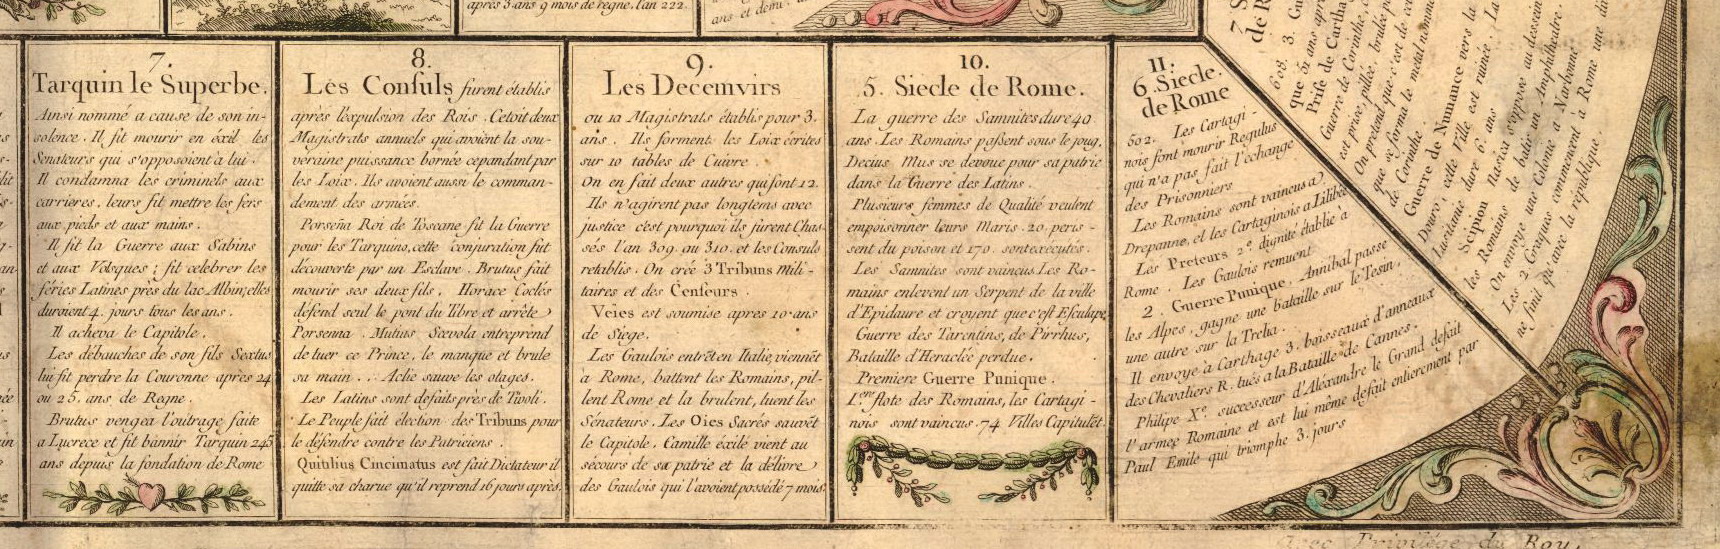 après 3 ans 9 mois de regne, l'an 222
ans et demi
7.
Tarquin le Superbe.
Ainsi nommé a cause de son in-
solence. Il fit mourir en éxil les
Senateurs qui s'opposoient à lui.
Il condamna les criminels aux
carrieres, leurs fit mettre les fers
aux pieds et aux mains.
Il fit la Guerre aux Sabins
et aux Volsques; fit celebrer les
féries Latines près du lac Albin; elles
duroient 4. jours tous les ans.
Il acheva le Capitole.
Les débauches de son fils Sextus
lui fit perdre la Couronne après 24
ou 25. ans de Regne.
Brutus vengea l'outrage faite
a Lucrece et fit bannir Tarquin 243
ans depuis la fondation de Rome
8.
Les Consuls furent établis
après l'éxpulsion des Rois. C'etoit deux
Magistrats annuels qui avoient la sou-
veraine puissance bornée cependant par
les Loix. Ils avoient aussi le comman-
dement des armées.
Porseña Roi de Toscane fit la Guerre
pour les Tarquins, cette conjuration fut
découverte par un Esclave. Brutus fait
mourir ses deux fils. Horace Coclés
défend seul le pont du Tibre et arrête
Porsenna. Mutius Scævola entreprend
de tuer ce Prince, le manque et brule
sa main. Clelie sauve les otages.
Les Latins sont defaits près de Tivoli.
Le Peuple fait élection des Tribuns pour
le defendre contre les Patriciens.
Quinlius Cincinatus est fait Dictateur il
quitte sa charue qu'il reprend 16 jours après.
9.
Les Decemvirs
ou 10 Magistrats établis pour 3.
ans. Ils forment les Loix écrites
sur 10 tables de Cuivre.
On en fait deux autres qui font 12.
Ils n'agirent pas longtems avec
justice c'est pourquoi ils furent Chas-
sés l'an 309 ou 310. et les Consuls
retablis. On créé 3 Tribuns Mili-
taires et des Censeurs.
Veies est soumise apres 10 ans
de Siege.
Les Gaulois entrêt en Italie, viennêt
à Rome, battent les Romains, pil-
lent Rome et la brulent, tuent les
Sénateurs. Les Oies Sacrés sauvêt
le Capitole. Camille éxilé vient au
sécours de sa patrie et la délivre
des Gaulois qui l'avoient possédé 7 mois.
10.
5. Siecle de Rome.
La guerre des Samnites dure 40.
ans. Les Romains passent sous le joug.
Decius Mus se devoue pour sa patrie
dans la Guerre des Latins.
Plusieurs femmes de Qualité veulent
empoisonner leurs Maris. 20. peris-
sent du poison et 170. sont exécutés.
Les Samnites sont vaincus. Les Ro-
mains enlevent un Serpent de la ville
d'Epidaure et croyent que c'est Esculape
Guerre des Tarentins, de Pirrhus,
Bataille d'Heraclée perdue.
Premiere Guerre Punique.
1.ere flote des Romains, les Cartagi-
nois sont vaincus. 74 Villes Capitulêt.
11.
6. Siecle.
de Rome
502. Les Cartagi-
nois font mourir Regulus
qui n'a pas fait l'échange
des Prisonniers
Les Romains sont vaincus a
Drepanne, et les Cartaginois a Lilibée
Les Preteurs 2.e dignité établie a
Rome. Les Gaulois remuent
2. Guerre Punique. Annibal passe
les Alpes, gagne une bataille sur le Tesin.
une autre sur la Trebia.
Il envoye à Carthage 3. boisseaux d'anneaux
des Chevaliers R. tués a la Bataille de Cannes.
Philipe X.e successeur d'Aléxandre le Grand defait
l'armée Romaine et est lui même défait entierement par
Paul Emile qui triomphe 3. jours
7 S
de R
608. 3. Gu
que 51. ans apr
Prise de Cartha
Guerre de Corinthe, c
est prise, pillée, brulée p
On pretend que c'est de ce
que se forma le metal nommé
de Corinthe.
Guerre de Numance vers la
Douro, cette Ville est ruinée. La
Lusitanie dure 6. ans
Scipion Nasica s'oppose au dessein
les Romains de batir un Amphiteatre.
On envoye une Colonie à Narbonne
Les 2 Graques commencent à Rome une di
ne finit qu'avec la république
avec Privilége du Roy.